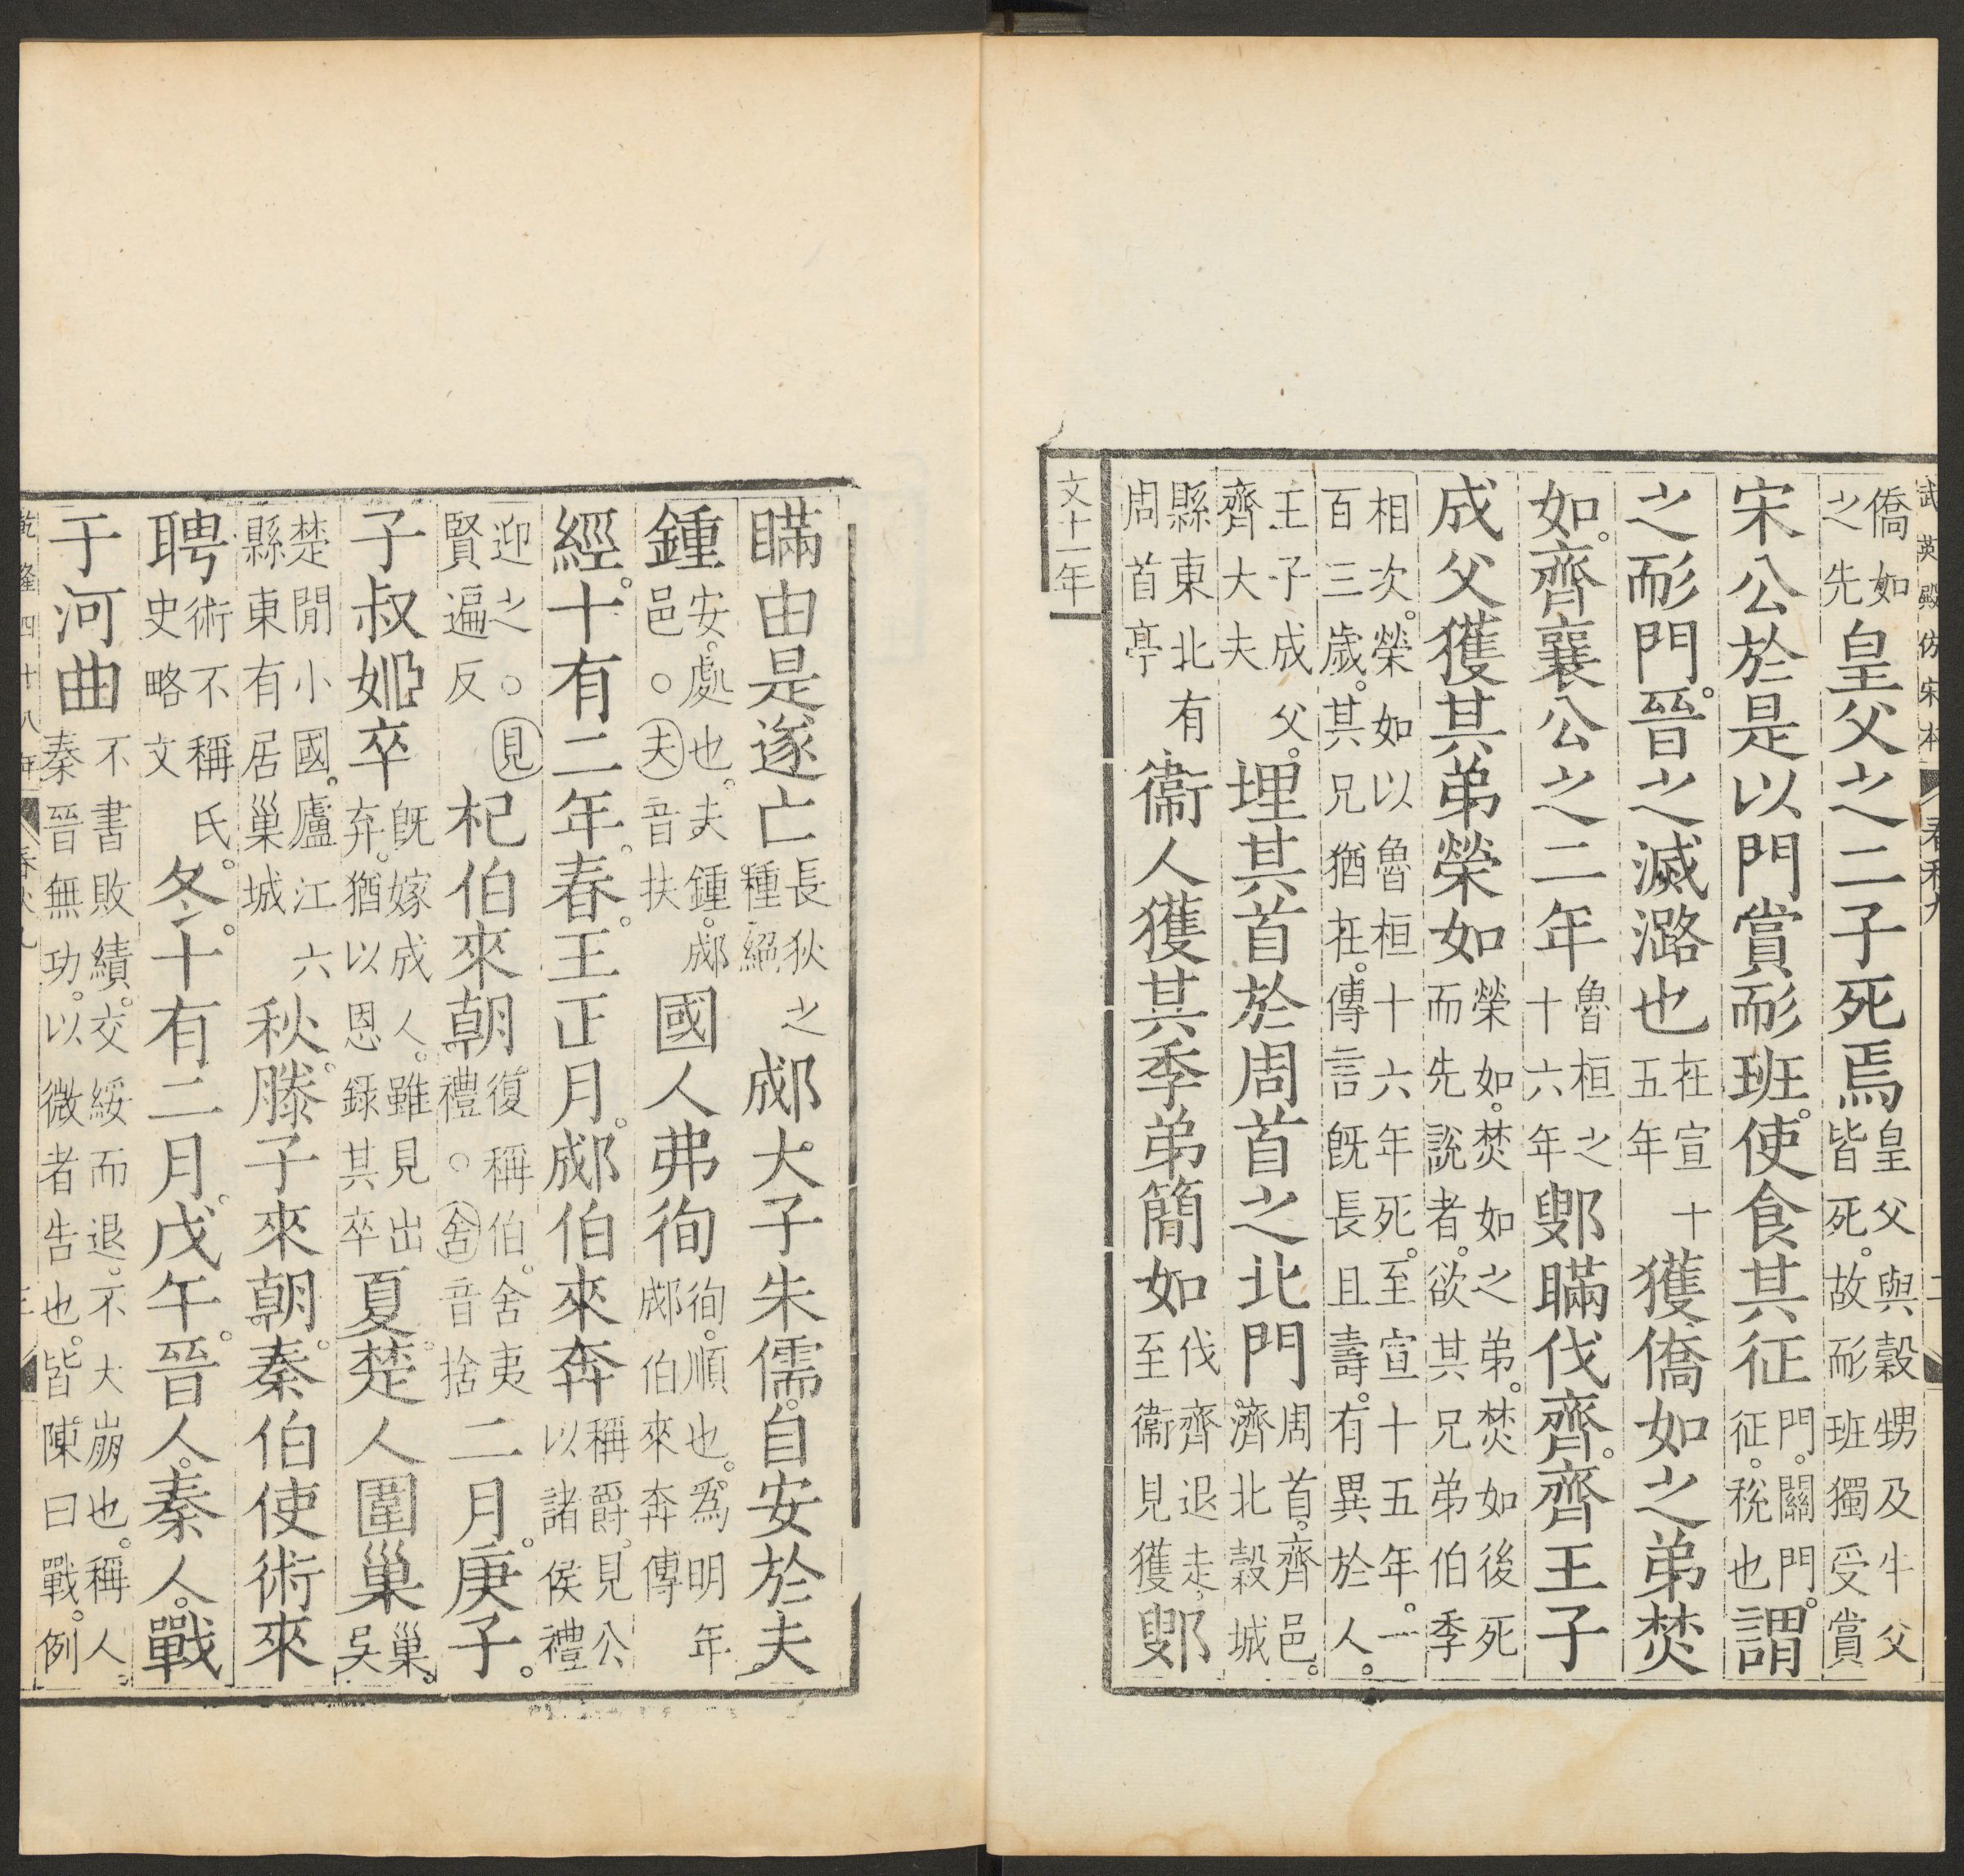 武英殿仿宋本 春秋九 二
僑如之先皇父之二子死焉皇父與穀甥及牛父皆死。故耏班獨受賞
宋公於是以門賞耏班。使食其征門。關門。征。稅也謂
之耏門。晉之滅潞也在宣十五年獲僑如之弟焚
如。齊襄公之二年魯桓之十六年鄋瞞伐齊。齊王子
成父獲其弟榮如榮如。焚如之弟。焚如後死而先說者。欲其兄弟伯季
相次。榮如以魯桓十六年死。至宣十五年。一百三歲。其兄猶在。傳言旣長且壽。有異於人。
王子成父。齊大夫埋其首於周首之北門周首。齊邑。濟北穀城
縣東北有周首亭衞人獲其季弟簡如伐齊退走。至衞見獲鄋
文十一年
瞞由是遂亡長狄之種絕郕大子朱儒。自安於夫
鍾安。處也。夫鍾。郕邑。○夫音扶國人弗徇徇。順也。爲明年郕伯來奔傳
經。十有二年。春。王正月。郕伯來奔稱爵。見公以諸侯禮
迎之。○見賢遍反杞伯來朝。復稱伯。舍夷禮。○舍音捨二月。庚子。
子叔姬卒旣嫁成人。雖見出弃。猶以恩錄其卒夏。楚人圍巢巢。吳
楚閒小國。廬江六縣東有居巢城秋。滕子來朝。秦伯使術來
聘術不稱氏。史略文冬。十有二月。戊午。晉人。秦人。戰
于河曲不書敗績。交綏而退。不大崩也。稱人。秦晉無功。以微者告也。皆陳曰戰。例
乾隆四十八年 春秋九 三